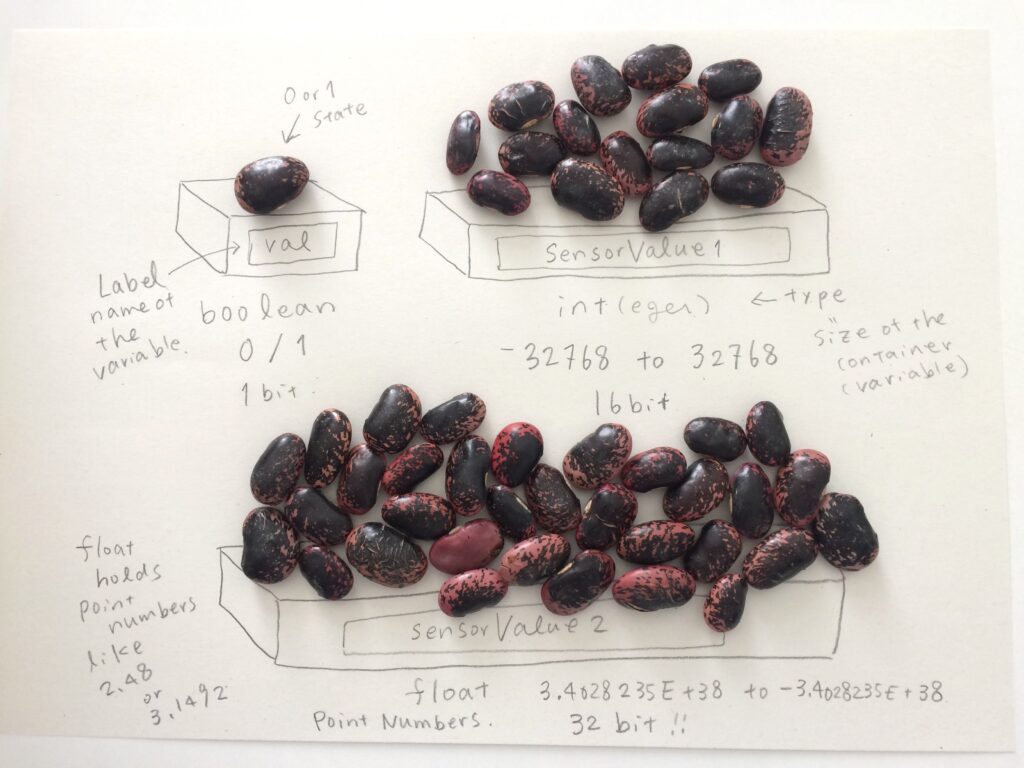 0 or 1
state
val
Label
name of
the
variable.
boolean
0 / 1
1 bit.
SensorValue1
int(eger)
← type
"
size of the
container
(variable)
-32768 to 32768
16 bit
float
holds
point
numbers
like
2.48
or
3.1492
sensorValue2
float 3.4028235E+38 to -3.4028235E+38
Point Numbers. 32 bit !!